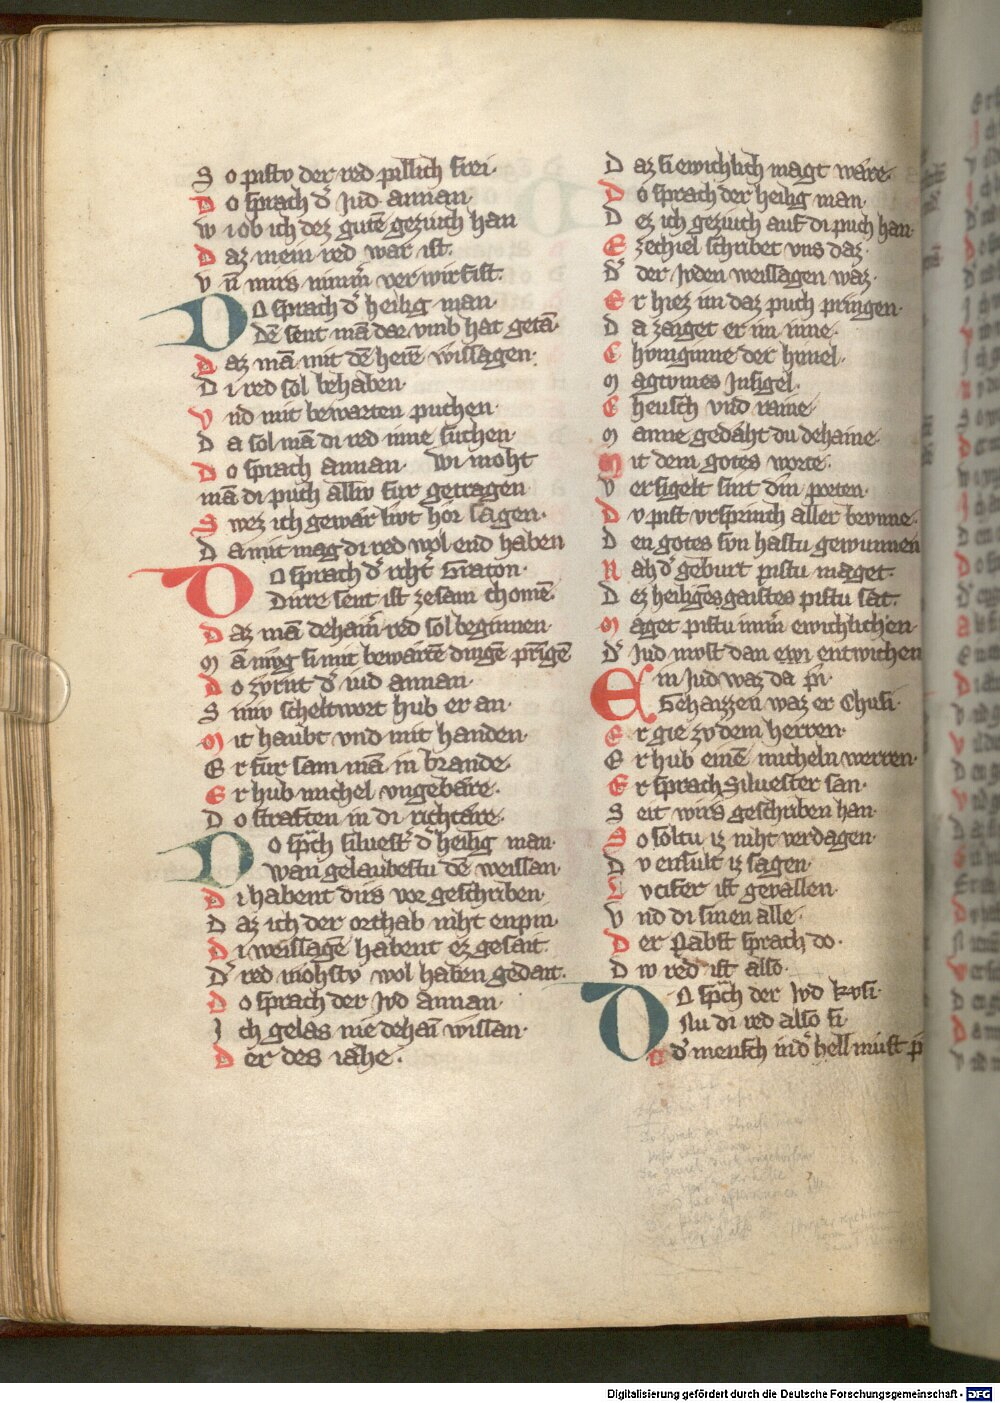 So pistv der red pillich frei·
Do sprach d̾ Jud annan·
wi ob ich dez gutē gezivch han
Daz mein red war ist·
vn̄ mirs nimm̄ verwirfist·
DO sprach d̾ heilig man·
Dē sent mā dar vmb hat getā·
Daz mā mit dē herē wissagen·
Di red sol behaben·
Vnd mit bewarten puchen·
Da sol mā di red inne suchen·
Do sprach annan· wi moht
mā di puch alliv fur getragen·
Swez ich gewar livt hör sagen·
Damit mag di red wol end haben
DO sprach d̾ riht̾ Graton·
Dirre sent ist zesam chomē·
Daz mā dehain̄ red sol beginnen·
Mā mvg si mit bewärtē dingē pringē
Do zvrnt d̾ iud annan·
Siniv scheltwort hub er an·
Mit haubt vnd mit handen·
Er fur sam mā in brande·
Er hub michel vngebäre·
Do straften in di richtäre·
Do sp̄ch siluest̾ d̾ heilig man·
wan gelaubestu dē weissan·
Di habent diis vor geschriben·
Daz ich der orthab niht enpin·
Di weissagē habent ez gesait·
D̾ red mohstv wol haben gedait·
Do sprach der Jvd annan·
Ich gelas nie dehaī wissan·
Der des iähe·
Daz si ewichlich magt wäre·
Do sprach der heilig man·
Dez ich gezivch auf di puch han·
Ezechiel schribet vns daz·
D̾ der Jvden weissagen waz·
Er hiez im daz puch pringen·
Da zaiget er im inne·
Chvniginne der himel·
Magtvmes Jnsigel·
Cheusch vnd raine·
Manne gedäht du dehaine·
Mit dem gotes worte·
Versigelt sint din porten·
Dv pist vrsprinch aller brvnne·
Den gotes svn hastu gewunnen
Nah d̾ geburt pistu maget·
Dez heiligēs gaistes pistu sat·
Maget pistu im̄m ewichlichen·
D̾ Jud mvst dan ewi entwichen
Ein Jud waz da pī·
Gehaizzen waz er Chusi·
Er gie zv dem herren·
Er hub einē micheln werren·
Er sprach Siluester san·
Seit wirs geschriben han·
So soltu iz niht verdagen·
Dv ensult iz sagen·
Lvcifer ist gevallen·
Vnd di sinen alle·
Der Pabst sprach do·
Div red ist also·
DO sp̄ch der Jvd kvsi·
Nu di red also si·
Daz d̾ mensch in d̾ hell must pī
Digitalisierung gefördert durch die Deutsche Forschungsgemeinschaft - DFG